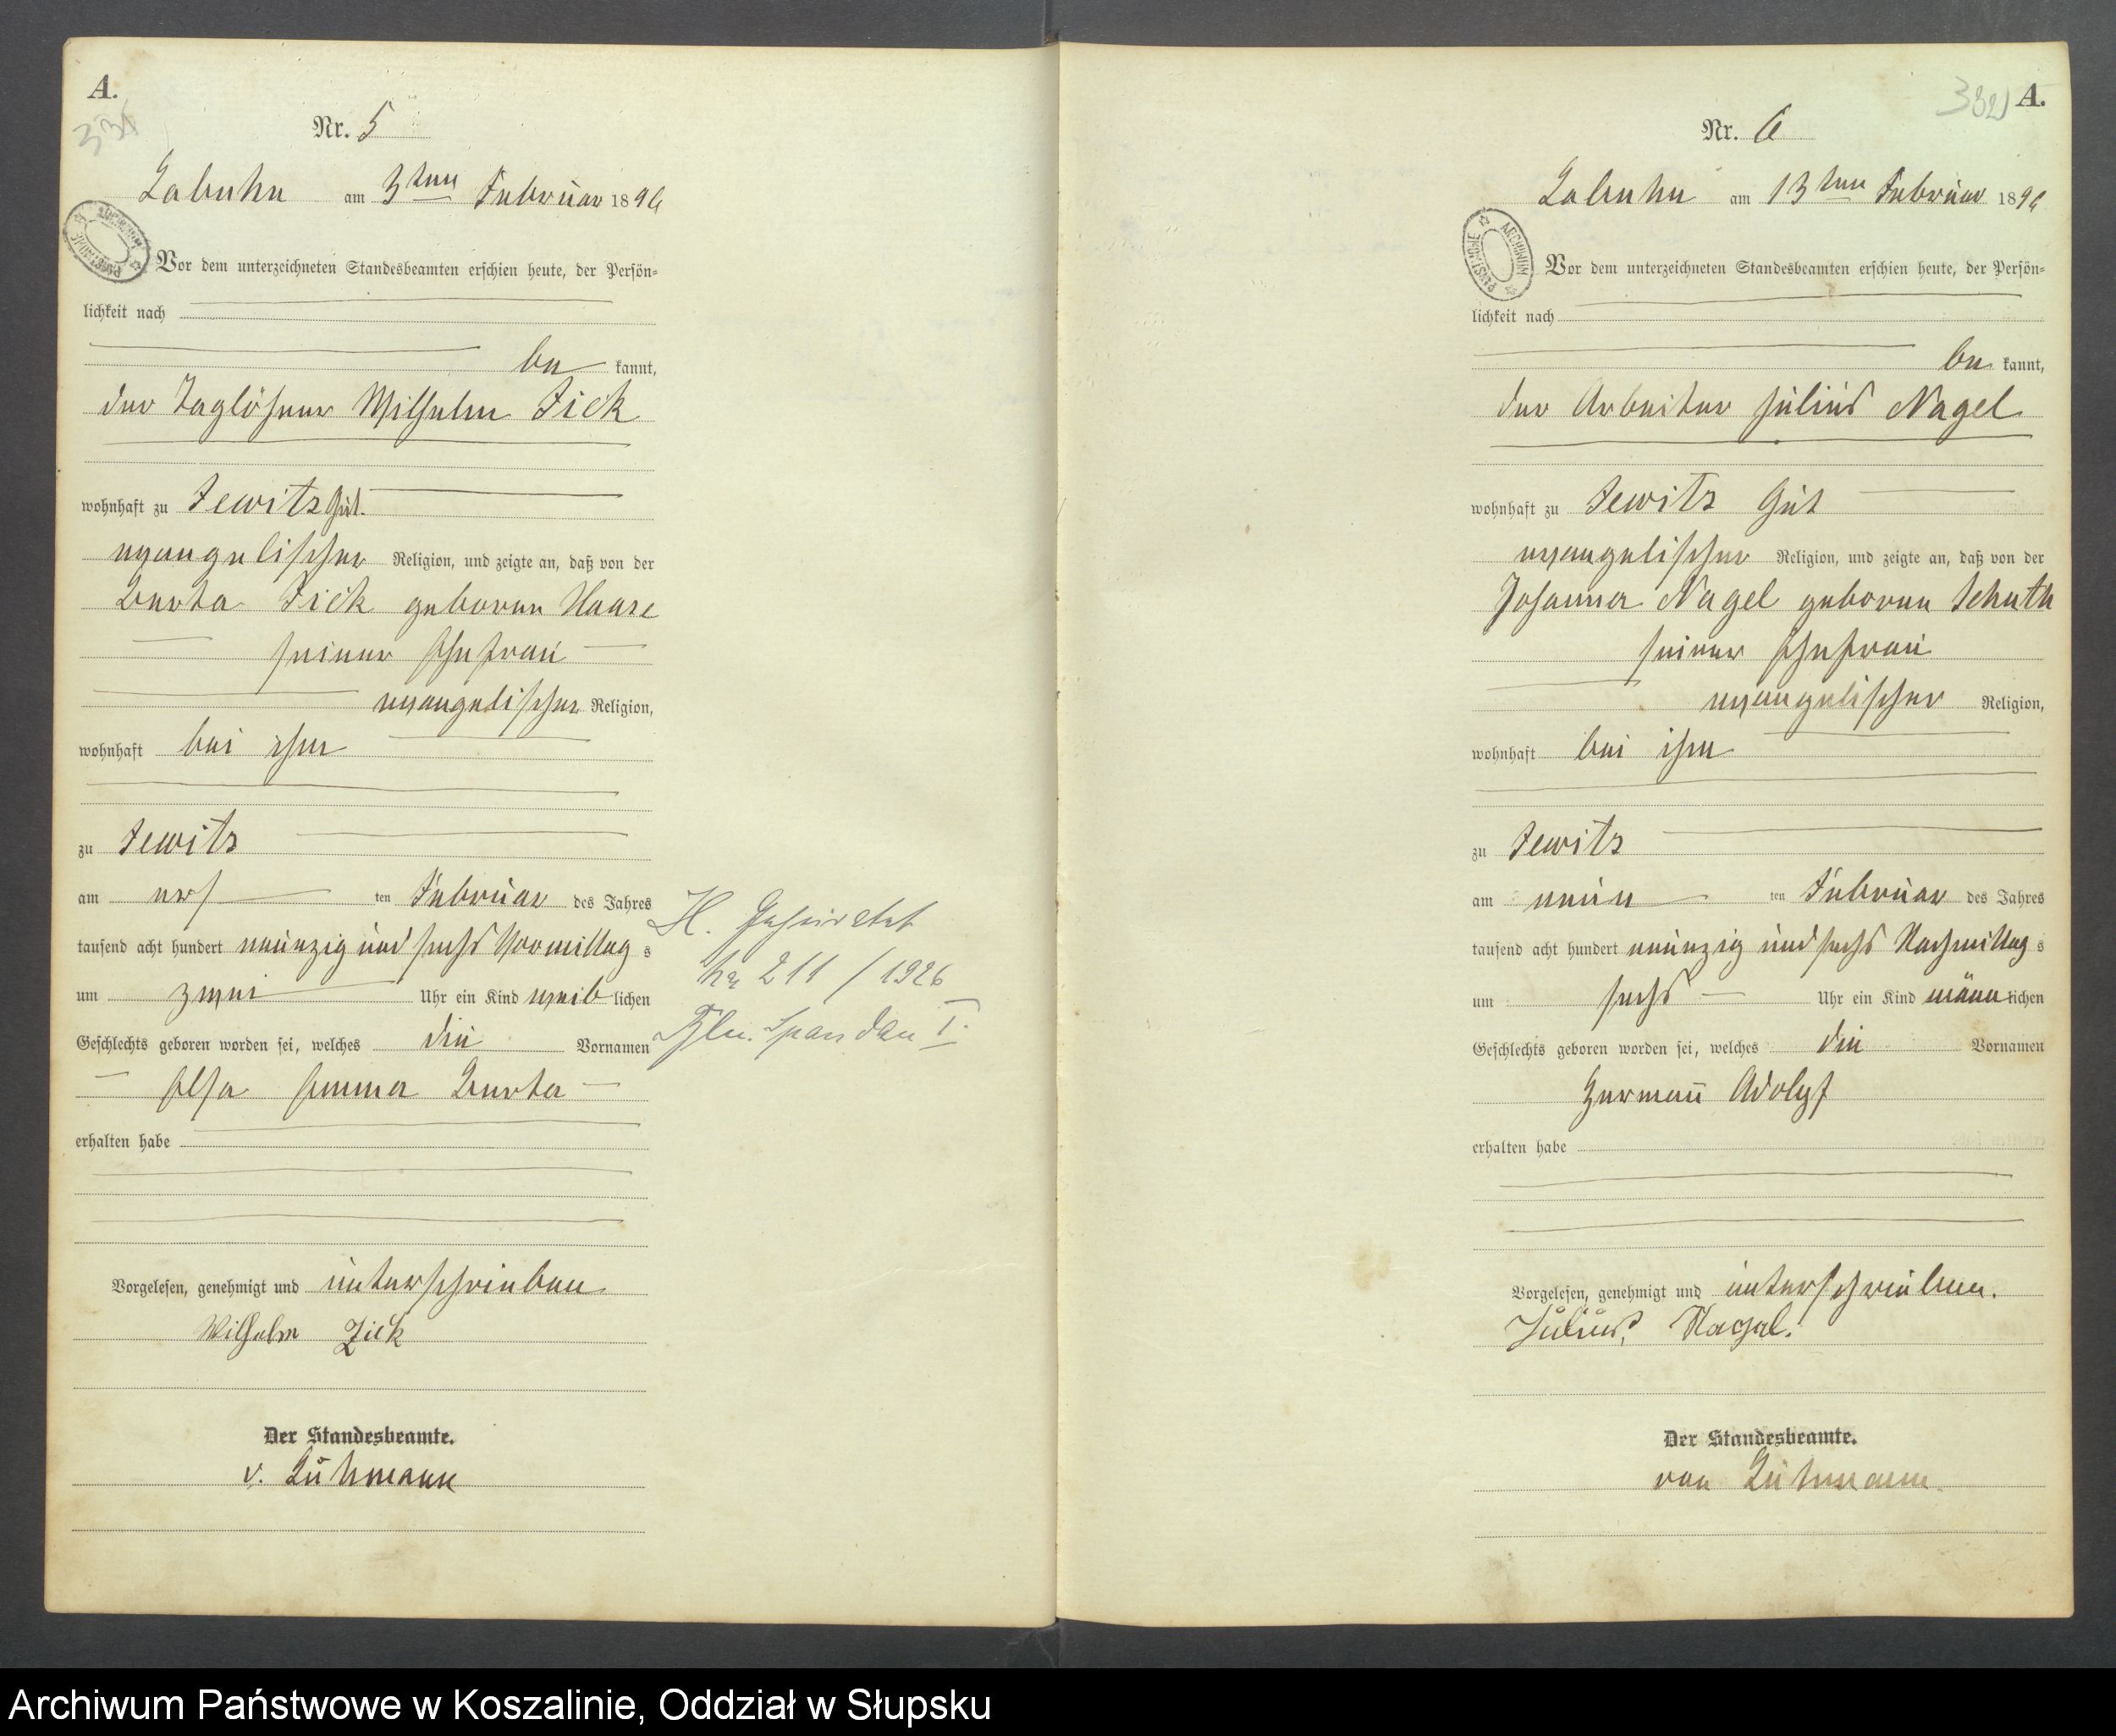 A.
Nr. 5
Labuhn am 3ten Februar 1896
Vor dem unterzeichneten Standesbeamten erschien heute, der Persön=
lichkeit nach
be kannt,
der Taglöhner Wilhelm Fick
wohnhaft zu Jewitz Gut.
evangelischer Religion, und zeigte an, daß von der
Berta Fick geboren Haase
seiner Ehefrau
evangelischer Religion,
wohnhaft bei ihm
zu Jewitz
am ers ten Februar des Jahres
tausend acht hundert neunzig und sechs Vormittag s
um zwei Uhr ein Kind weib lichen
Geschlechts geboren worden sei, welches die Vornamen
Elsa Emma Berta
erhalten habe
Vorgelesen, genehmigt und unterschrieben
Wilhelm Fick
Der Standesbeamte.
v. Lühmann
H. Geheiratet
Nr 211 / 1926
Bln. Spandau I.
A.
Nr. 6
Labuhn am 13ten Februar 1896
ARCHIWUM PAŃSTWOWE
Vor dem unterzeichneten Standesbeamten erschien heute, der Persön=
lichkeit nach
be kannt,
der Arbeiter Julius Nagel
wohnhaft zu Jewitz Gut
evangelischer Religion, und zeigte an, daß von der
Johanna Nagel geboren Schuth
seiner Ehefrau
evangelischer Religion,
wohnhaft bei ihm
zu Jewitz
am neun ten Februar des Jahres
tausend acht hundert neunzig und sechs Nachmittag s
um sechs Uhr ein Kind männ lichen
Geschlechts geboren worden sei, welches die Vornamen
Hermann Adolf
erhalten habe
Vorgelesen, genehmigt und unterschrieben.
Julius Nagel.
Der Standesbeamte.
von Lühmann.
Archiwum Państwowe w Koszalinie, Oddział w Słupsku